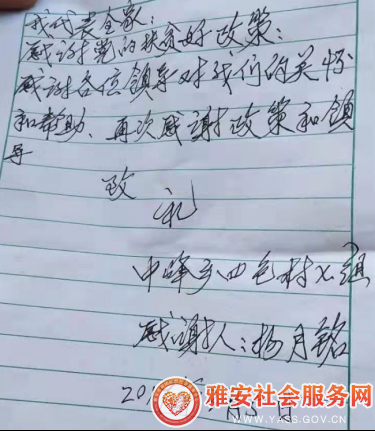 我代表全家：
感谢党的扶贫好政策：
感谢各位领导对我们的关怀
和帮助、再次感谢政策和领
导
致
礼
中峰乡四包村X组
感谢人：杨月铭
20
雅安社会服务网
WWW.YASS.GOV.CN